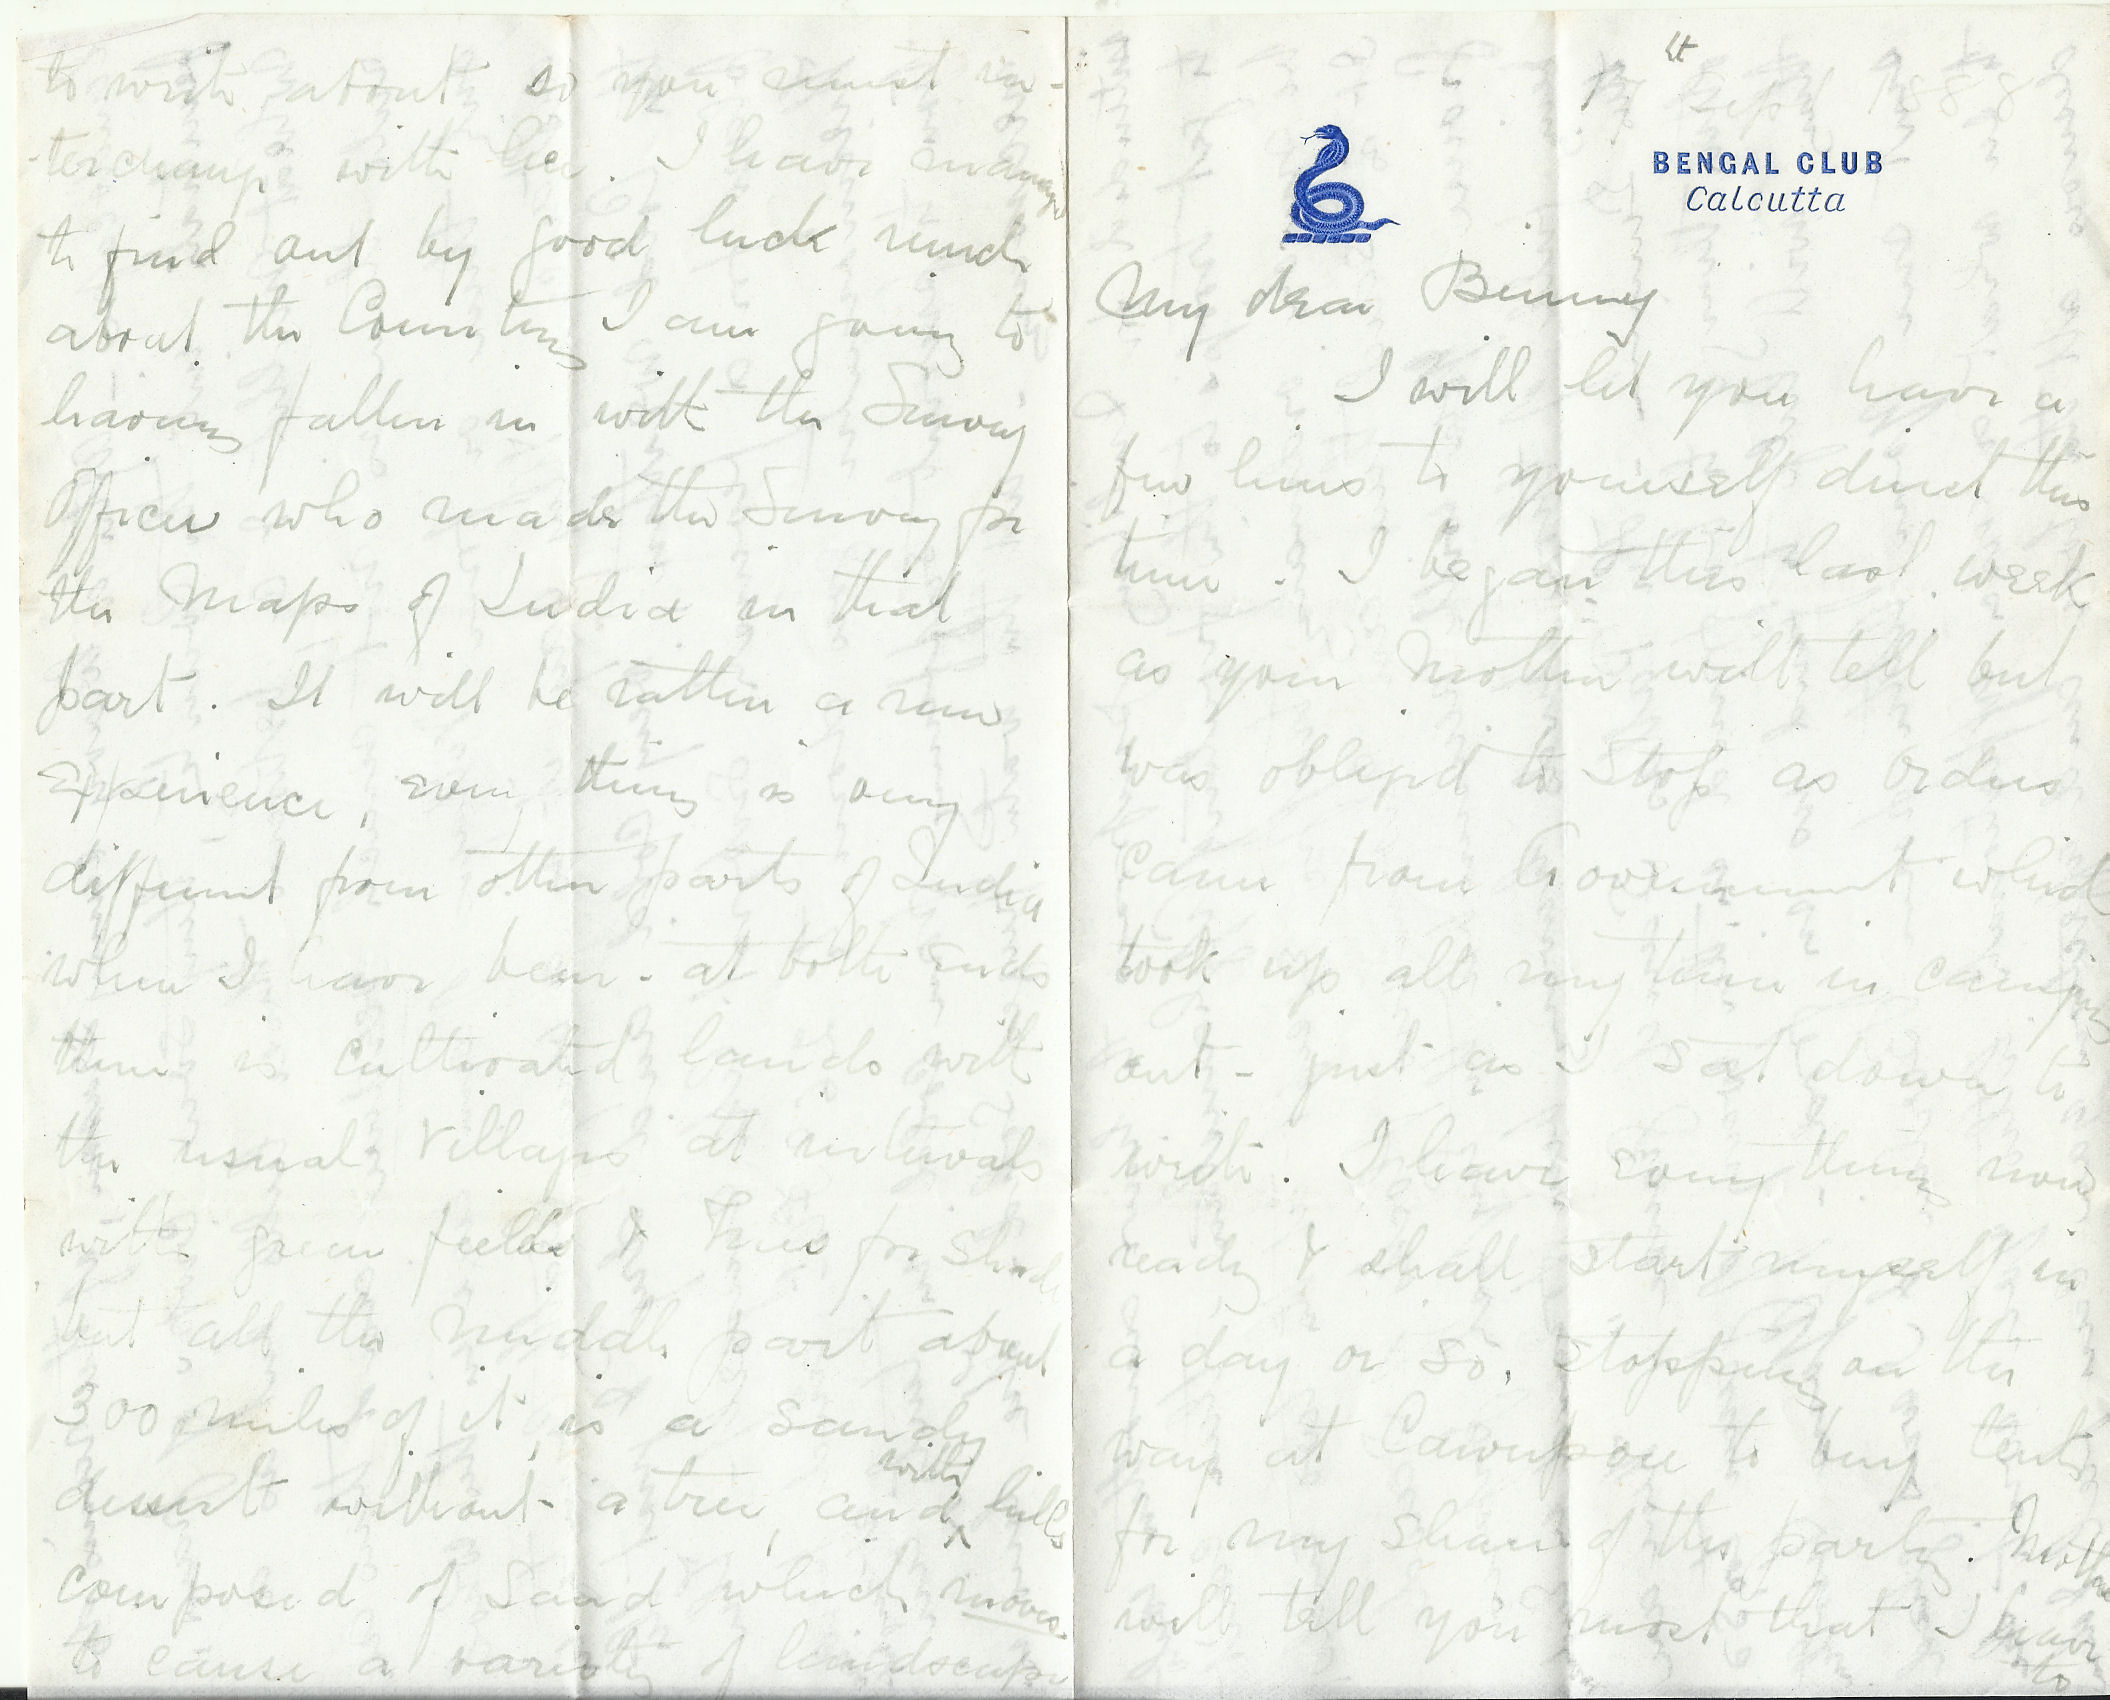 Sept 1888
BENGAL CLUB
Calcutta
My dear Binny
I will let you have a
few lines to yourself direct this
time. I began this last week
as your Mother will tell but
was obliged to stop as orders
came from Government which
took up all my time in camping
out - just as I sat down to
write. I have every thing now
ready & shall start myself in
a day or so, stopping on the
way at Cawnpore to buy tents
for my share of the party. Mother
will tell you most that I have
to
to write about so you must in-
terchange with her. I have managed
to find out by good luck much
about the Country I am going to
having fallen in with the Survey
Officer who made the Survey for
the Maps of India in that
part. It will be rather a new
Experience, every thing is very
different from other parts of India
where I have been - at both ends
there is cultivated lands with
the usual Villages at intervals
with green fields & Trees for shade
but all the middle part about
300 miles of it, is a sandy
desert without a tree, and with hills
composed of sand which moves
to cause a variety of landscape